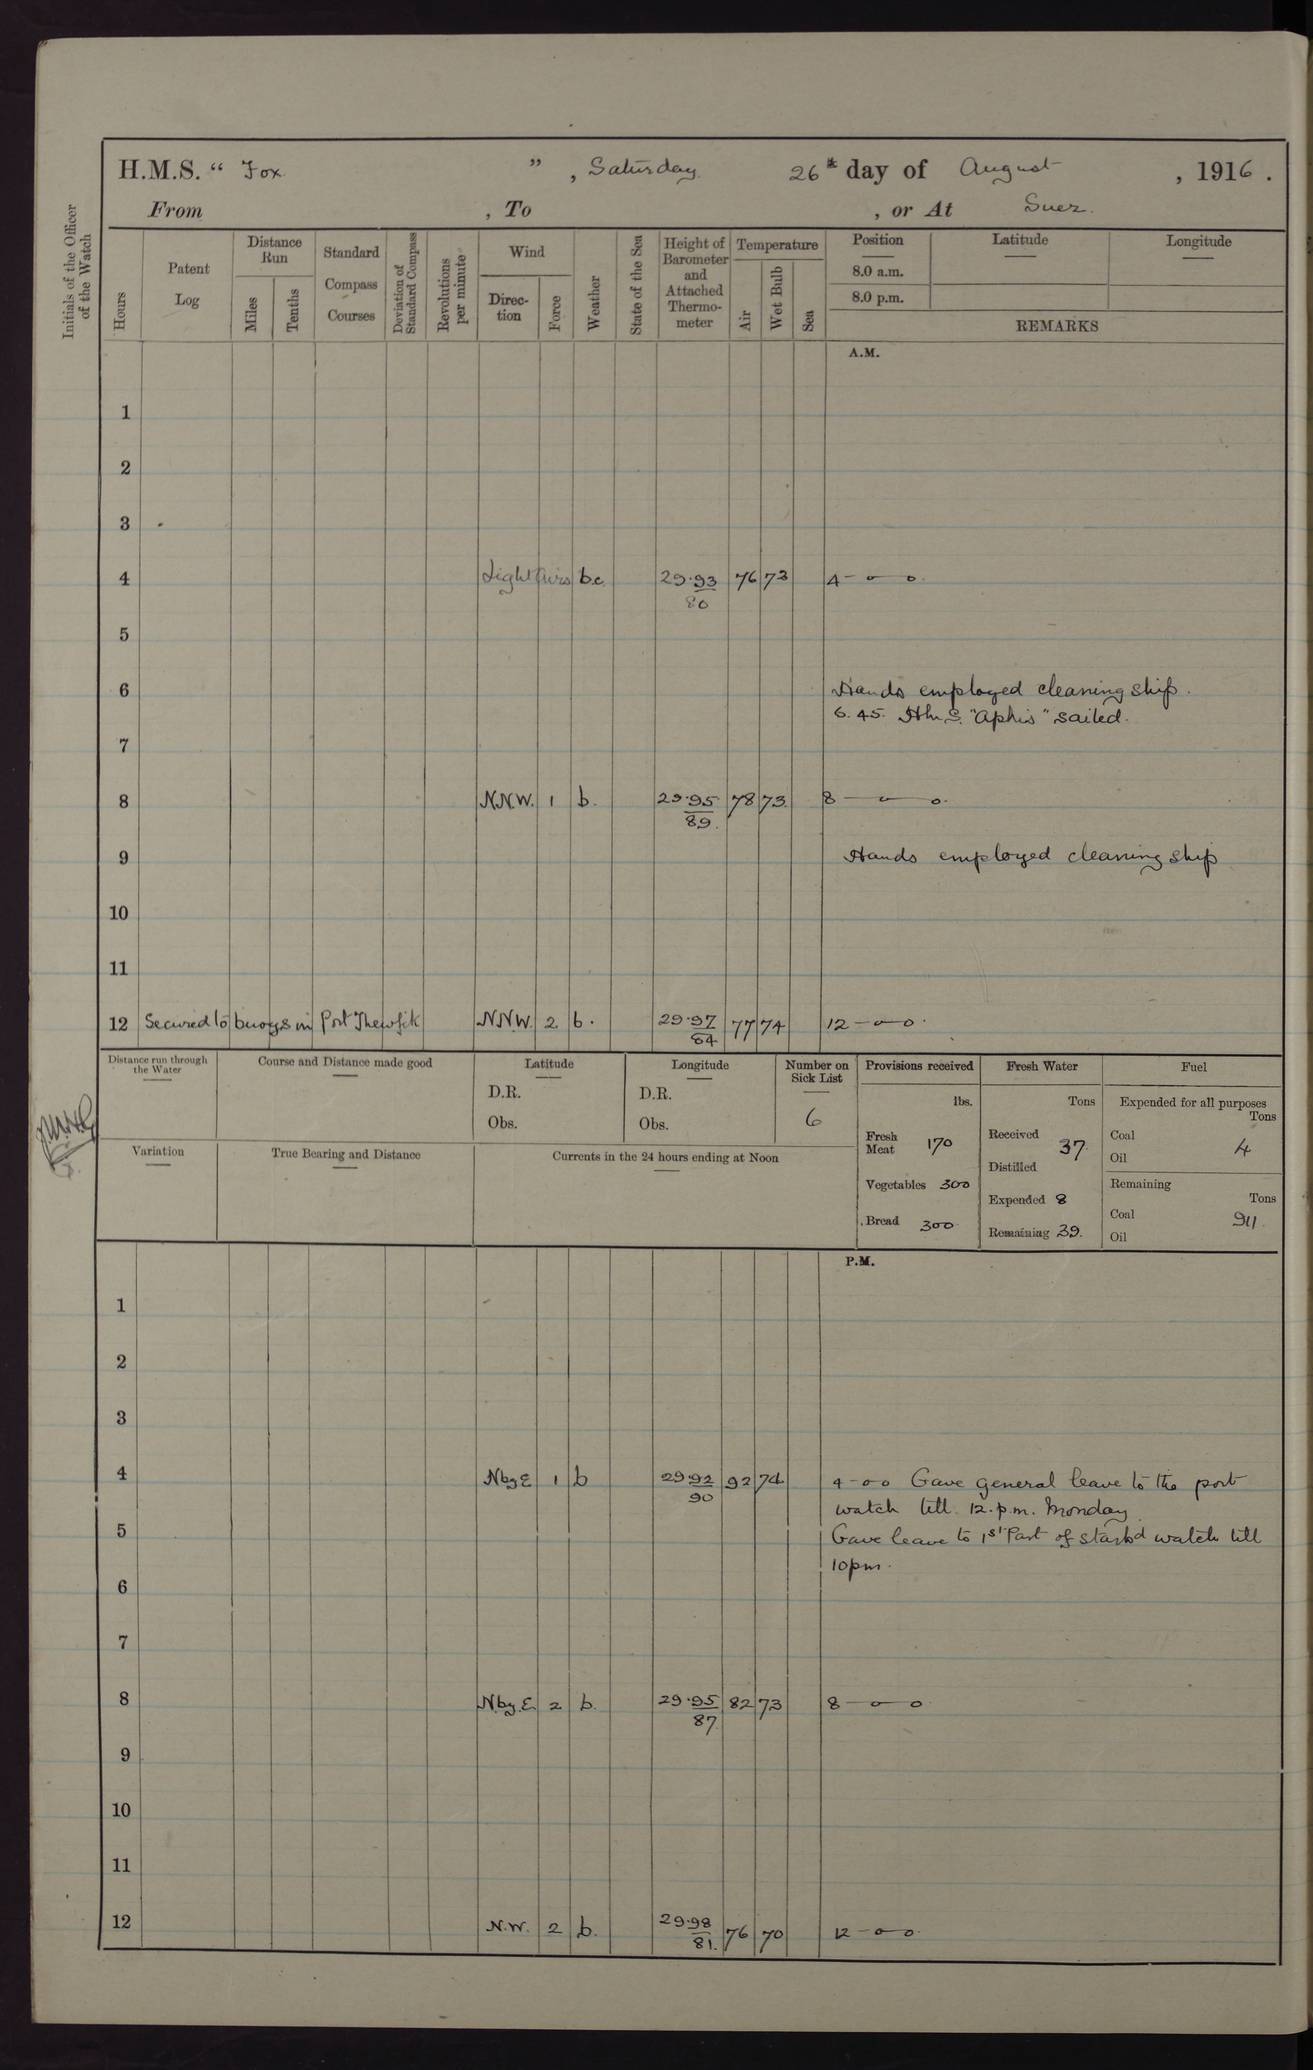 H.M.S. “ Fox ” , Saturday 26th day of August , 1916 .
From , To , or At Suez.
Initials of the Officer of the Watch
Hours
Patent Log
Distance Run
Miles
Tenths
Standard Compass Courses
Deviation of Standard Compass
Revolutions per minute
Wind
Direc-tion
Force
Weather
State of the Sea
Height of Barometer and Attached Thermo-meter
Temperature
Air
Wet Bulb
Sea
Position
8.0 a.m.
8.0 p.m.
Latitude
Longitude
REMARKS
A.M.
1
2
3
4 Light airs b.c. 29.93 76 73 4 - o - o.
80
5
6 Hands employed cleaning ship.
6.45. H.M.S. "Aphis" sailed.
7
8 N.N.W. 1 b. 29.95 78 73. 8 — o — o.
89.
9 Hands employed cleaning ship
10
11
12 Secured to buoys in Port Thewfik N.N.W. 2 b. 29.97 77 74 12 - o - o.
84
Distance run through the Water
Course and Distance made good
Latitude
D.R.
Obs.
Longitude
D.R.
Obs.
Number on Sick List
6
Provisions received
lbs.
Fresh Meat 170
Vegetables 300
Bread 300
Fresh Water
Tons
Received 37.
Distilled
Expended 8
Remaining 39.
Fuel
Expended for all purposes
Tons
Coal
Oil 4
Remaining
Tons
Coal 911.
Oil
Variation
True Bearing and Distance
Currents in the 24 hours ending at Noon
P.M.
1
2
3
4 N by E 1 b 29.92 92 74 4 - o o Gave general leave to the port
90 watch till 12.p.m. Monday
5 Gave leave to 1st Part of starb'd watch till
10pm.
6
7
8 N. by. E. 2 b. 29.95 82 73 8 — o — o
87
9
10
11
12 N.W. 2 b. 29.98 76 70 12 - o o.
81.